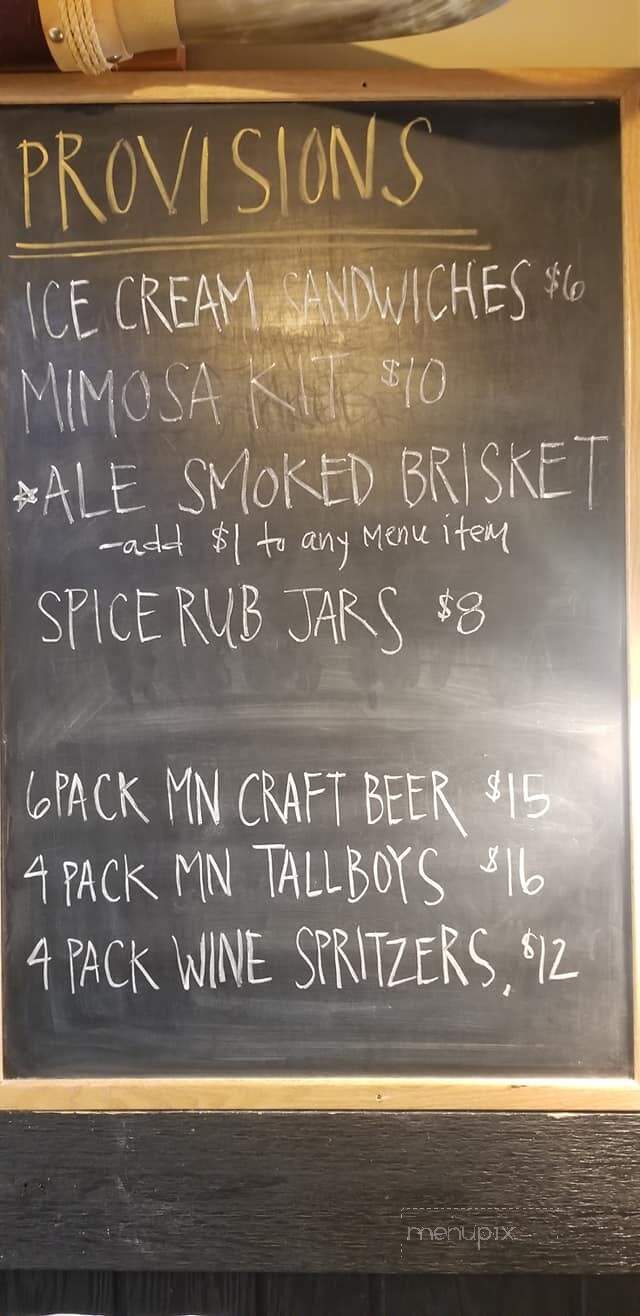 PROVISIONS
ICE CREAM SANDWICHES $6
MIMOSA KIT $10
☆ALE SMOKED BRISKET
-add $1 to any Menu item
SPICE RUB JARS $8
6PACK MN CRAFT BEER $15
4 PACK MN TALLBOYS $16
4 PACK WINE SPRITZERS, $12
menupix